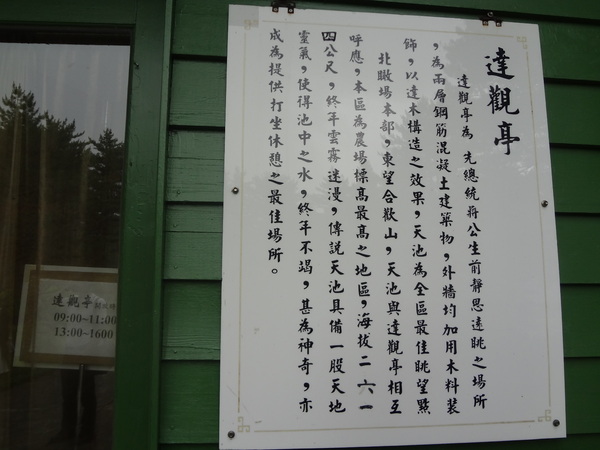 達觀亭
達觀亭為 先總統蔣公生前靜思遠眺之場所
，為兩層鋼筋混凝土建築物，外牆均加用木料裝
飾，以達木構造之效果，天池為全區最佳眺望點
北瞰場本部，東望合歡山，天池與達觀亭相互
呼應，本區為農場標高最高之地區，海拔二六一
四公尺，終年雲霧迷漫，傳說天池具備一股天地
靈氣，使得池中之水，終年不竭，甚為神奇，亦
成為提供打坐休憩之最佳場所。
達觀亭
09:00~11:00
13:00~1600